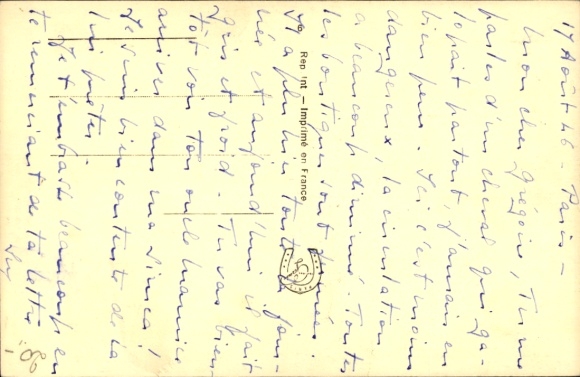 17 Août 46 - Paris -
Mon cher Grégoire, Tu me
parles d'un cheval qui ga-
lopait partout, j'aurais eu
bien peur. Ici c'est moins
dangereux, la circulation
a beaucoup diminué. Toutes
les boutiques sont fermées.
Il a plu hier toute la jour-
née et aujourd'hui il fait
gris et froid. Tu vas bien-
tôt voir ton oncle Maurice
arriver dans ma Simca !
Je suis bien contente de la
lui prêter.
Je t'embrasse beaucoup en
te remerciant de ta lettre
Rep Int - Imprimé en France